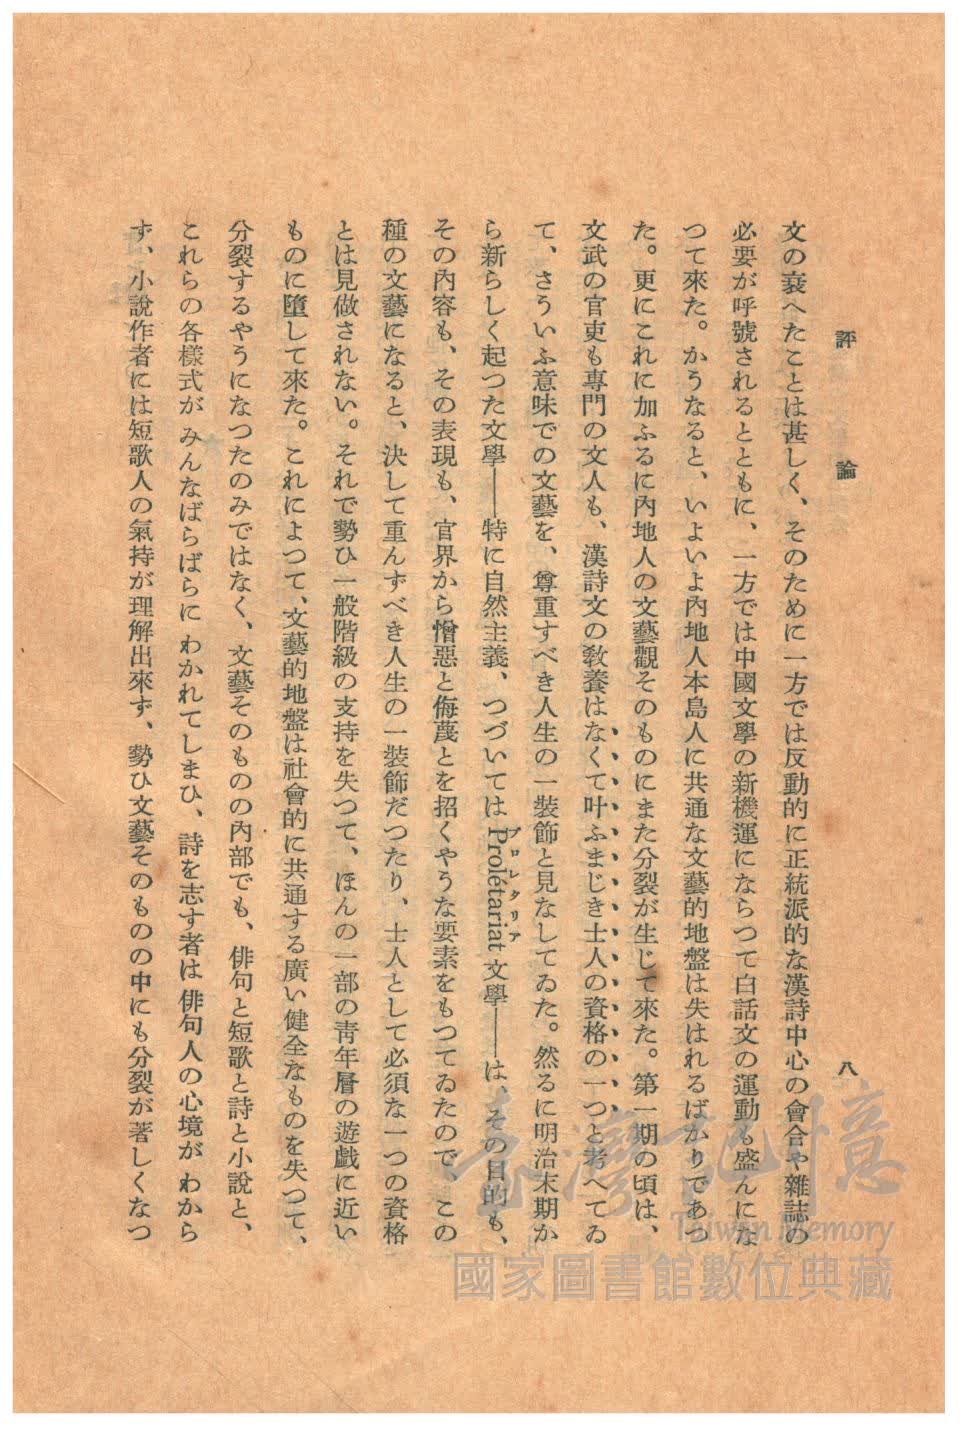 評論
八
文の衰へたことは甚しく、そのために一方では反動的に正統派的な漢詩中心の會合や雜誌の
必要が呼號されるとともに、一方では中國文學の新機運にならつて白話文の運動も盛んにな
つて來た。かうなると、いよいよ內地人本島人に共通な文藝的地盤は失はれるばかりであつ
た。更にこれに加ふるに內地人の文藝觀そのものにまた分裂が生じて來た。第一期の頃は、
文武の官吏も專門の文人も、漢詩文の敎養はなくて叶ふまじき士人の資格の一つと考へてゐ
て、さういふ意味での文藝を、尊重すべき人生の一裝飾と見なしてゐた。然るに明治末期か
ら新らしく起つた文學――特に自然主義、つづいては Prolétariat 文學――は、その目的も、
プロレタリア
その內容も、その表現も、官界から憎惡と侮蔑とを招くやうな要素をもつてゐたので、この
種の文藝になると、決して重んずべき人生の一裝飾だつたり、士人として必須な一つの資格
とは見做されない。それで勢ひ一般階級の支持を失つて、ほんの一部の靑年層の遊戲に近い
ものに墮して來た。これによつて、文藝的地盤は社會的に共通する廣い健全なものを失つて、
分裂するやうになつたのみではなく、文藝そのものの內部でも、俳句と短歌と詩と小說と、
これらの各樣式がみんなばらばらにわかれてしまひ、詩を志す者は俳句人の心境がわから
ず、小說作者には短歌人の氣持が理解出來ず、勢ひ文藝そのものの中にも分裂が著しくなつ
臺灣記憶
Taiwan Memory
國家圖書館數位典藏